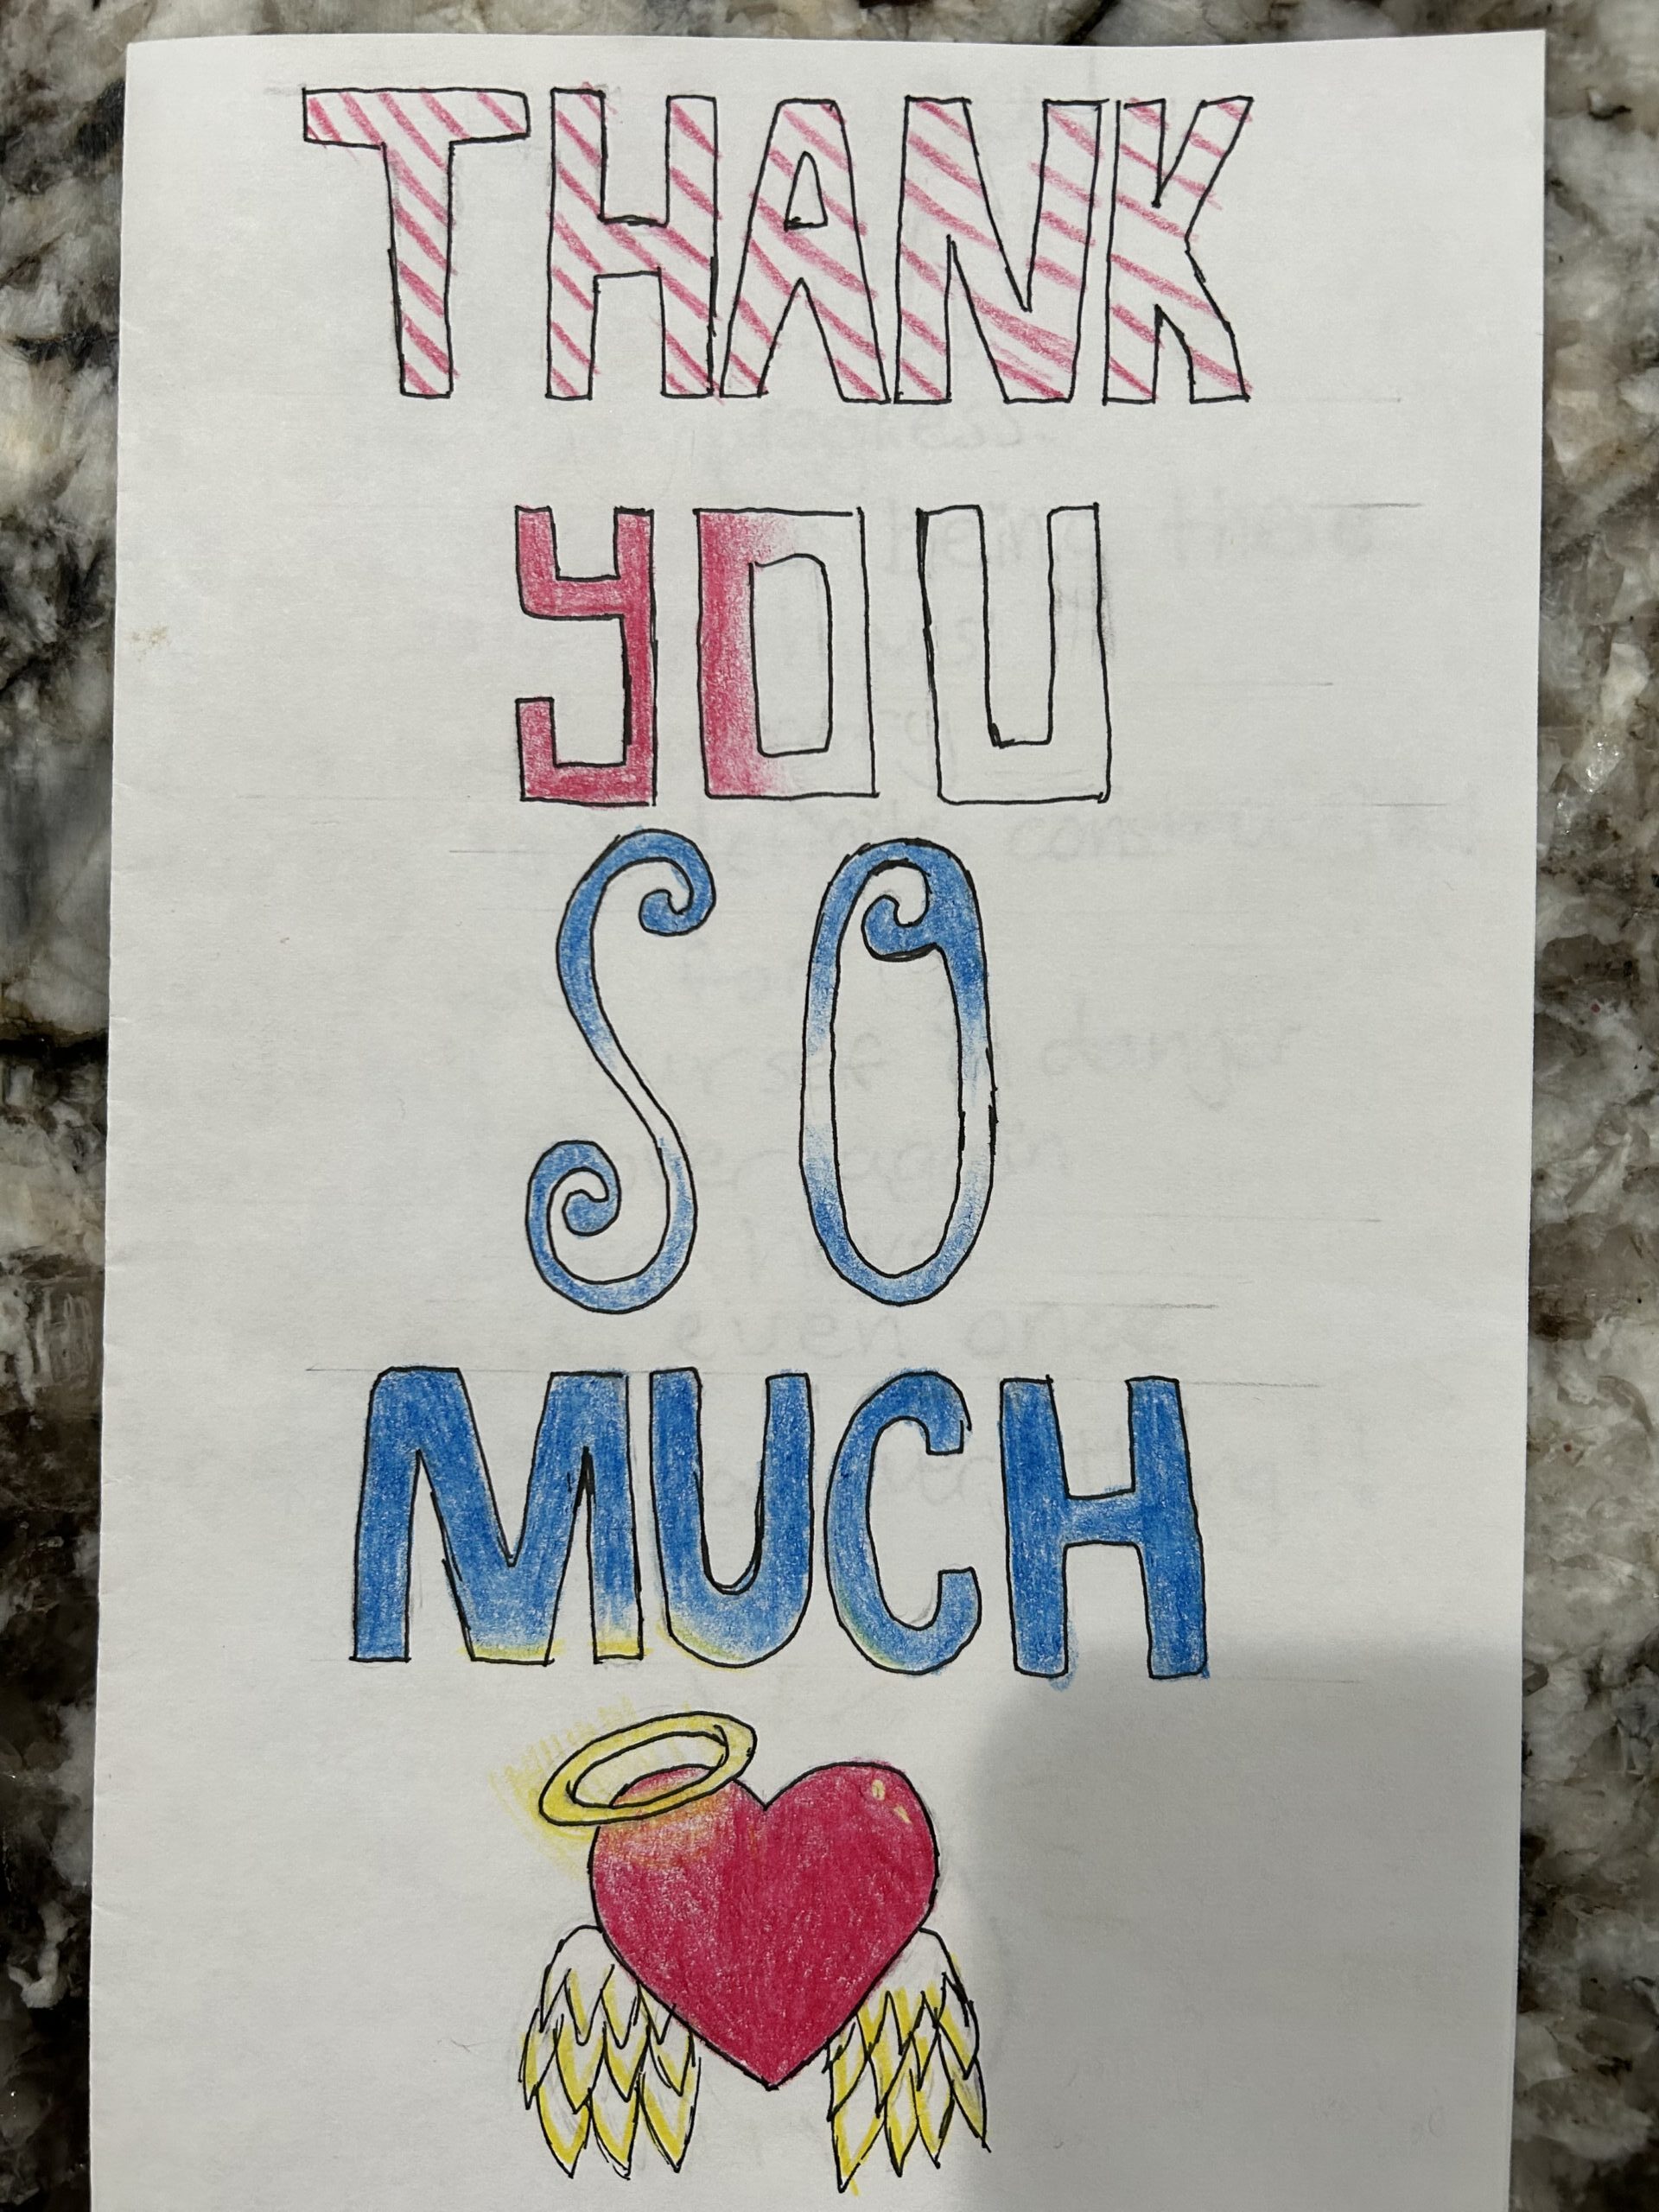 THANK
YOU
SO
MUCH